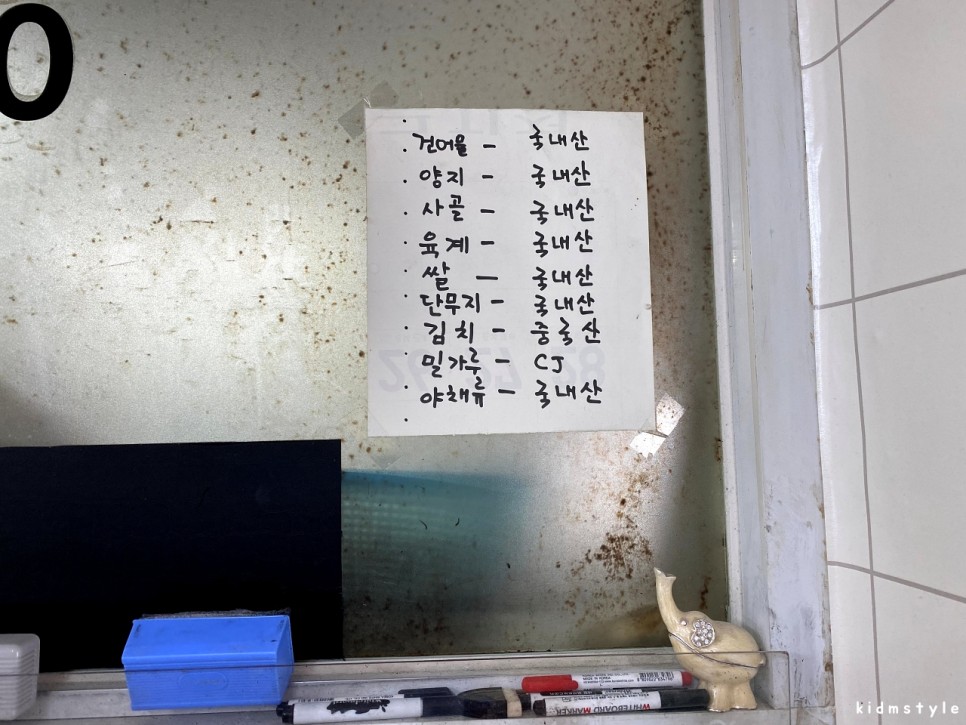 0
건어물 - 국내산
양지 - 국내산
사골 - 국내산
육계 - 국내산
쌀 - 국내산
단무지 - 국내산
김치 - 중국산
밀가루 - CJ
야채류 - 국내산
WHITEBOARD MARKER
kidmstyle